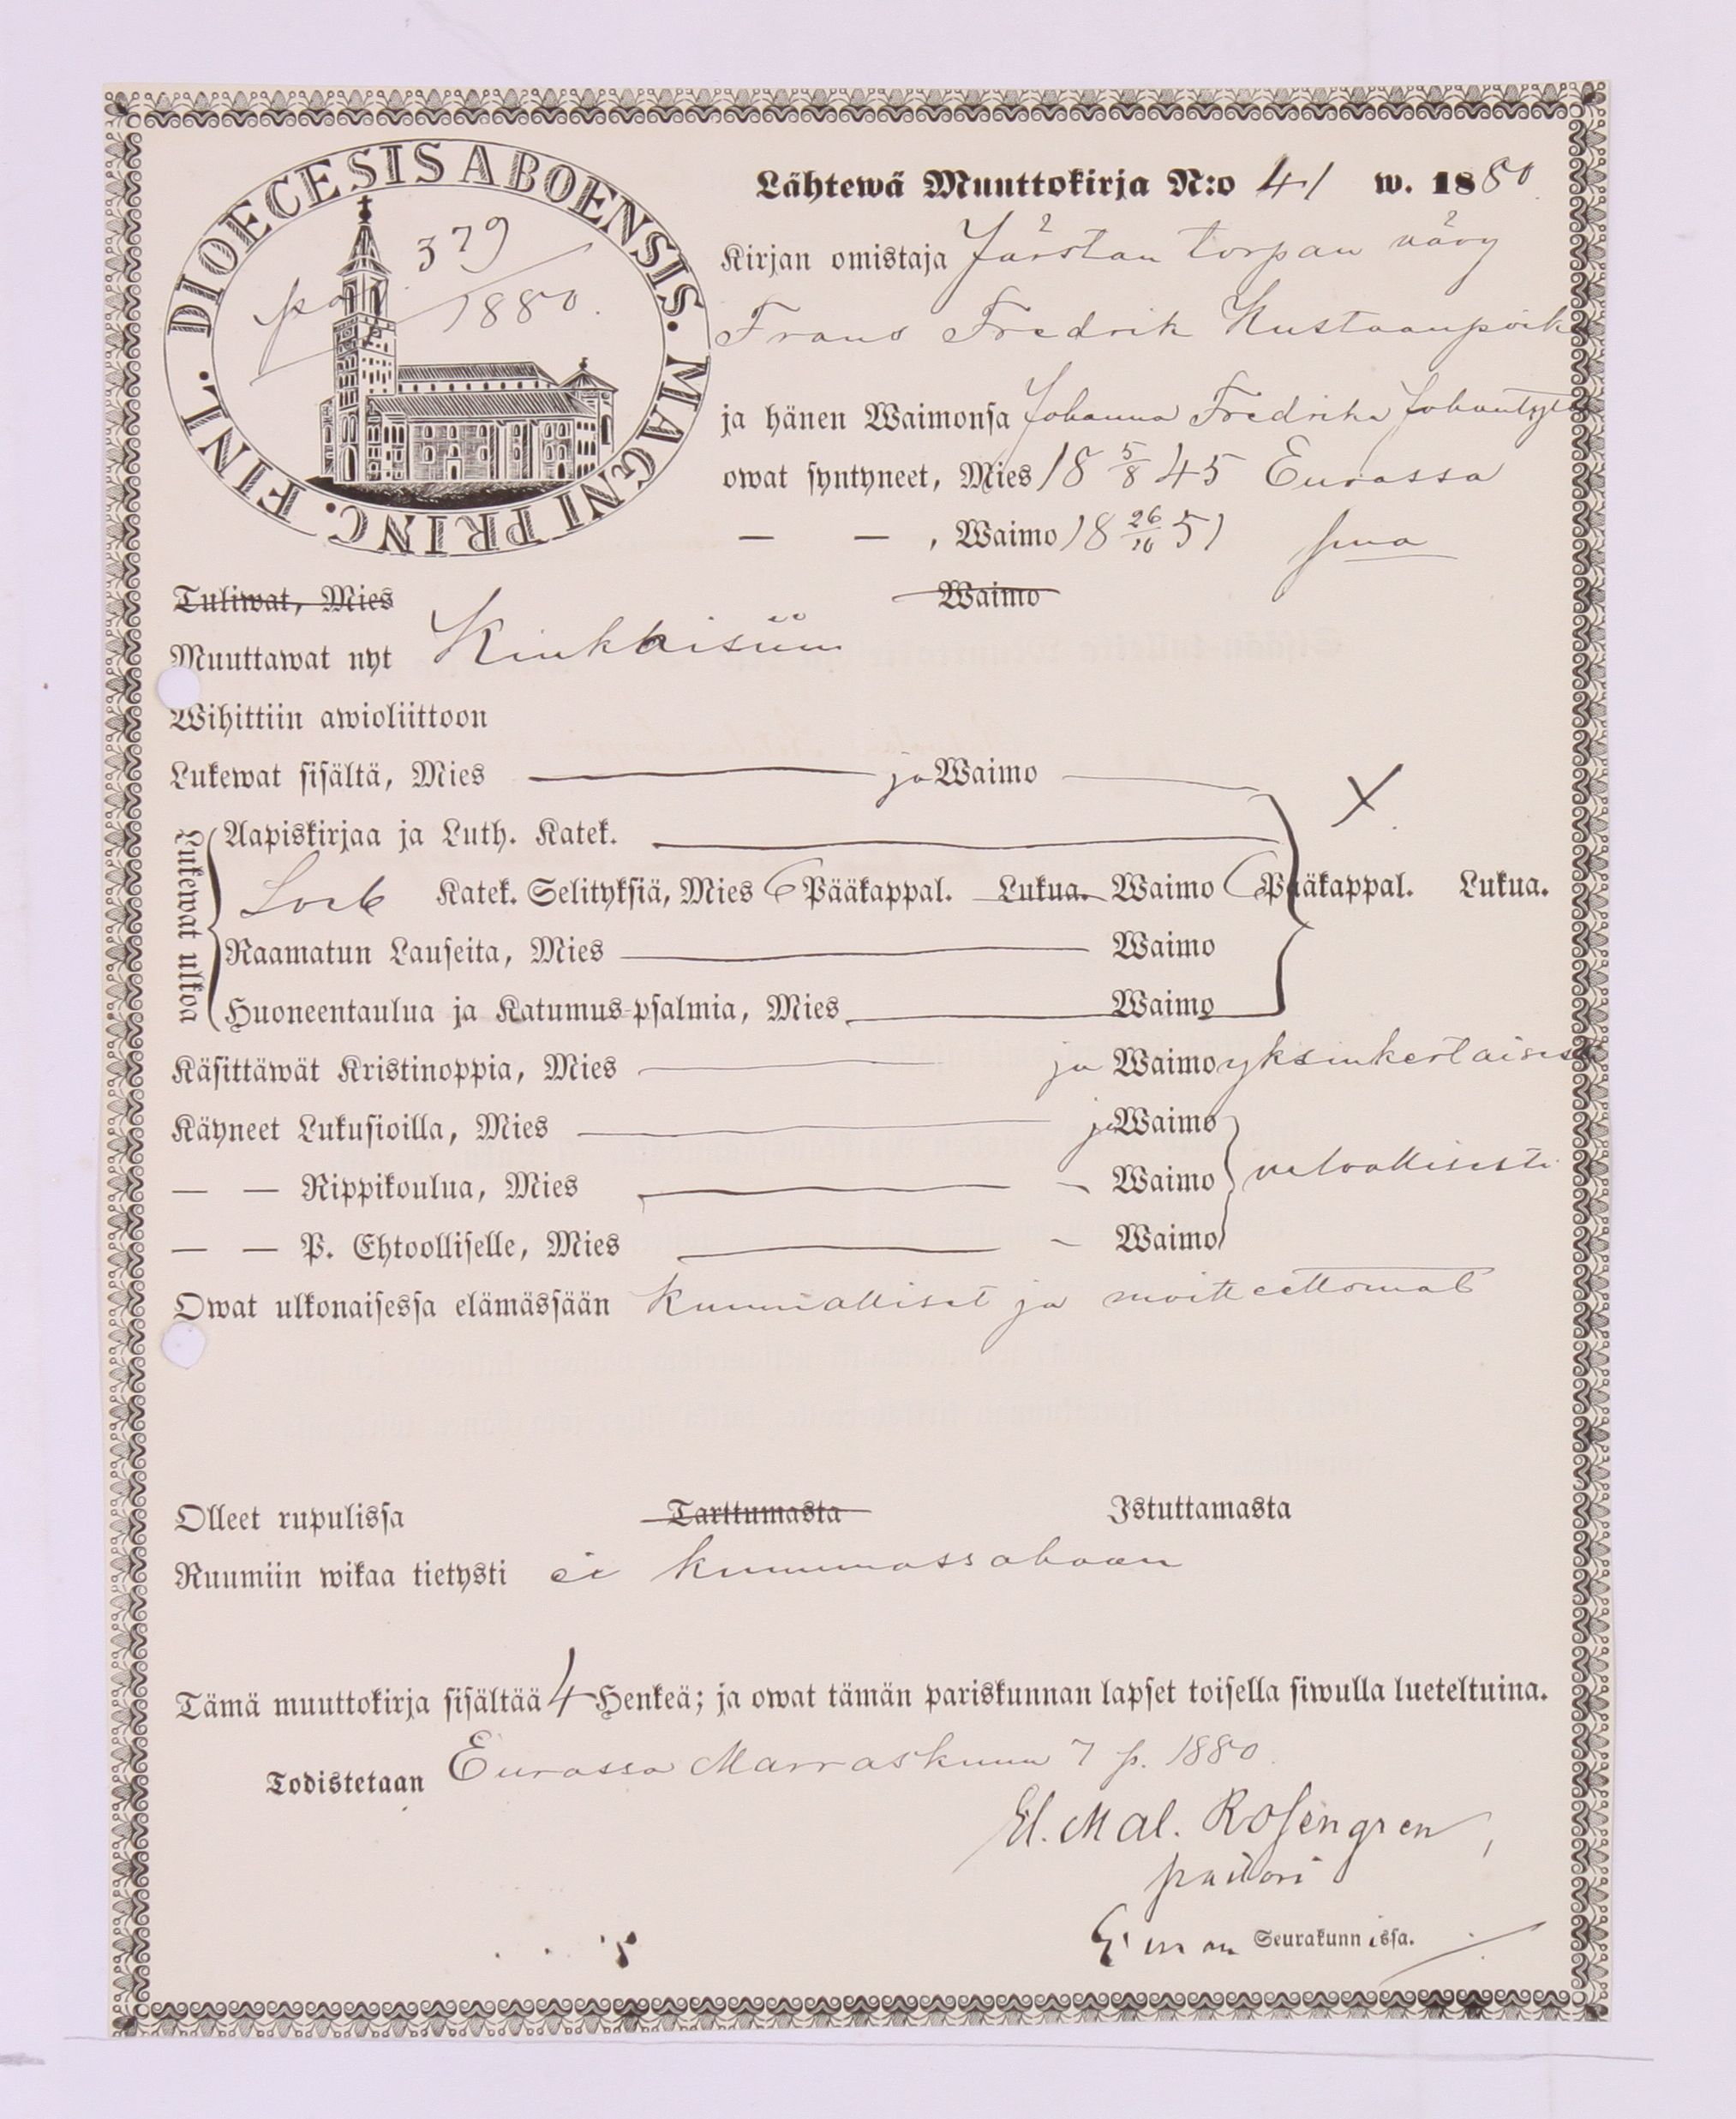 DIOECESIS ABOENSIS. MAGNI PRINC. FINL.
379
1880.
Lähtewä Muuttokirja N:o 41 w. 1880.
Kirjan omistaja torpan vävy
Frans Fredrik Kustaanpoik
ja hänen Waimonsa Johanna Fredrika Johantyt
owat syntyneet, Mies 18 5/8 45 Eurassa
— — , Waimo 18 26/10 51
Tuliwat, Mies Waimo
Muuttawat nyt Kiukkaisiin
Wihittiin awioliittoon
Lukewat sisältä, Mies ja Waimo
Lukewat ulkoa
Aapiskirjaa ja Luth. Katek.
Katek. Selityksiä, Mies 6 Pääkappal. Lukua. Waimo 6 Pääkappal. Lukua.
Raamatun Lauseita, Mies Waimo
Huoneentaulua ja Katumus-psalmia, Mies Waimo
X
Käsittäwät Kristinoppia, Mies ja Waimo yksinkertaisest
Käyneet Lukusioilla, Mies ja Waimo
— — Rippikoulua, Mies - Waimo
— — P. Ehtoolliselle, Mies - Waimo
Owat ulkonaisessa elämässään kunnialliset ja moitteettomat
Olleet rupulissa Tarttumasta Istuttamasta
Ruumiin wikaa tietysti ei kummassakaan
Tämä muuttokirja sisältää 4 Henkeä; ja owat tämän pariskunnan lapset toisella siwulla lueteltuina.
Todistetaan Eurassa Marraskuun 7 p. 1880.
El. Mal. Rosengren,
pastori
Euran Seurakunnissa.